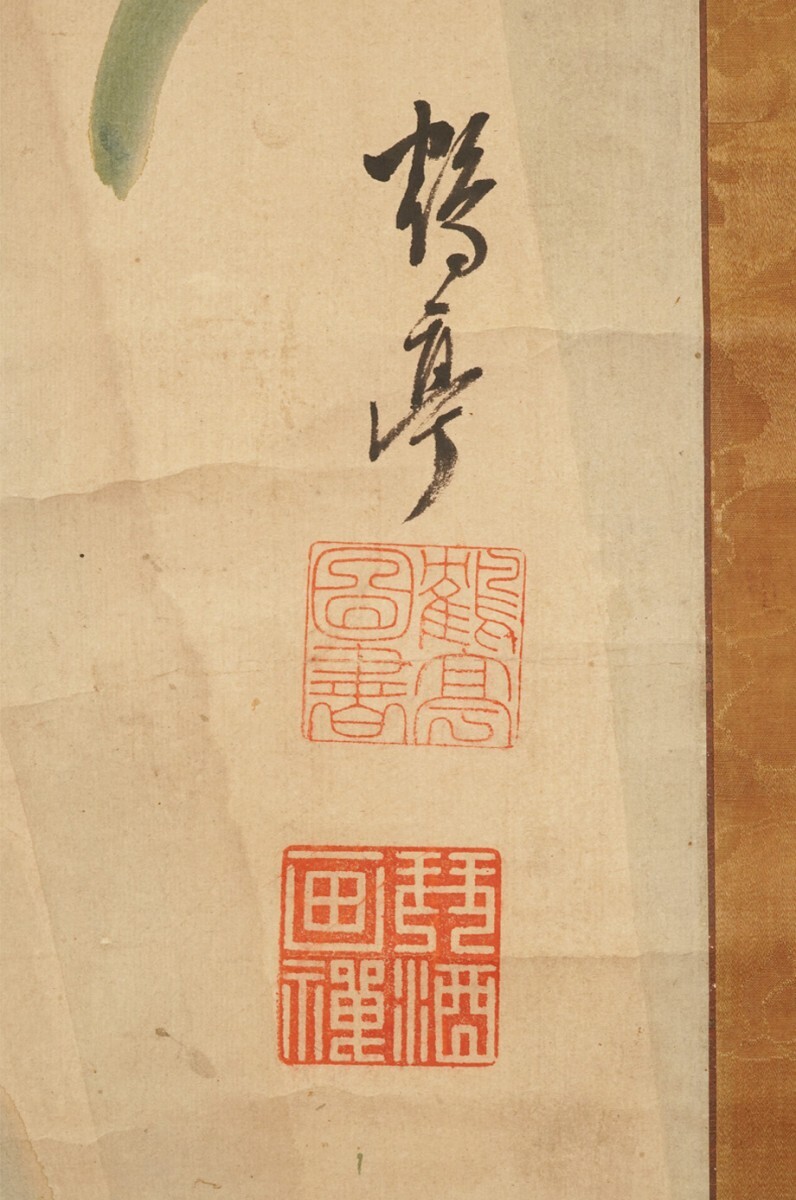 鶴亭
鶴亭
図書
琴酒
画禅